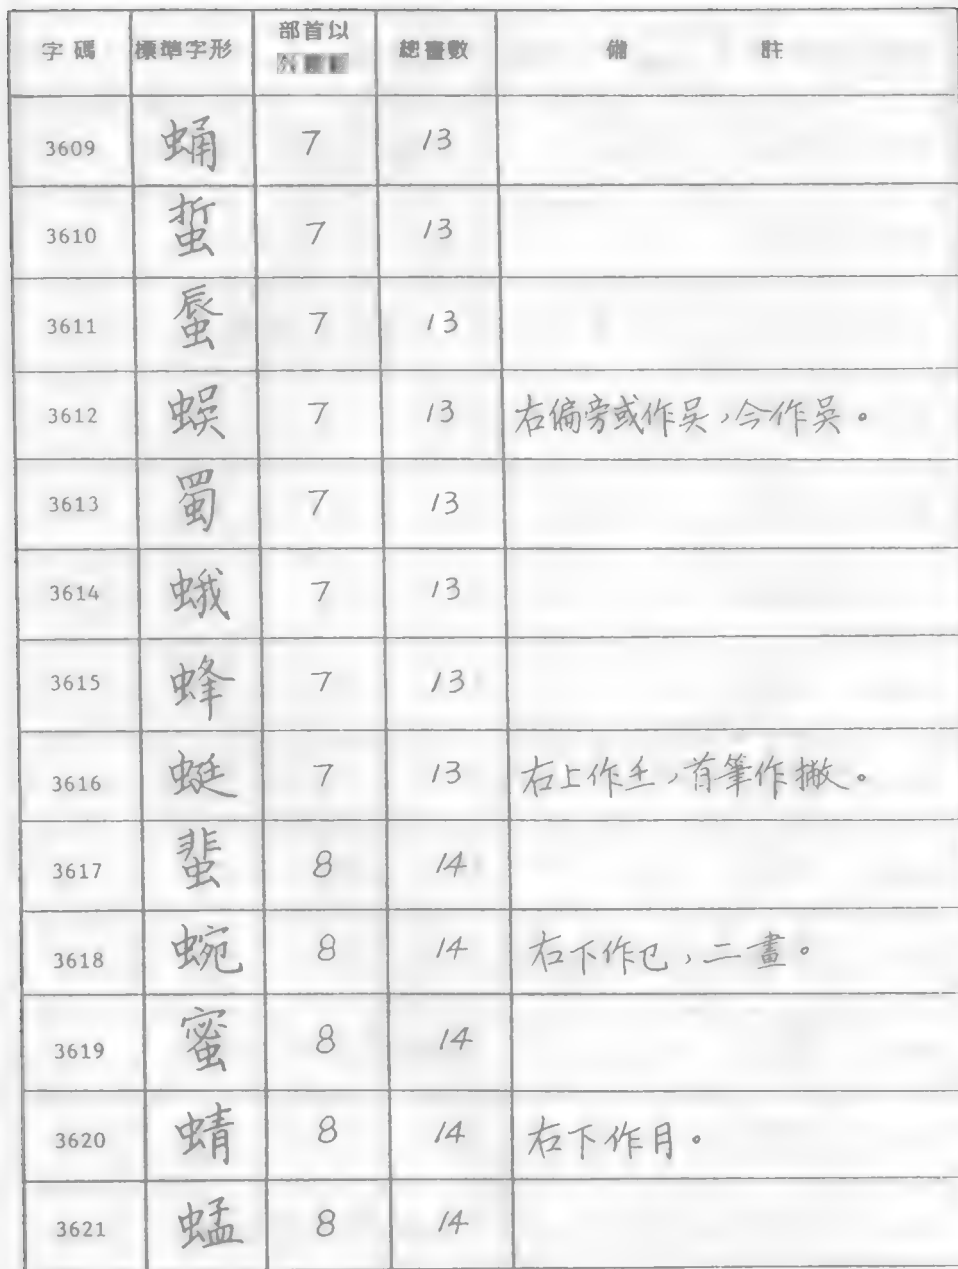 字碼 標準字形 部首以外 總畫數 備註
3609 蛹 7 13
3610 蜇 7 13
3611 蜃 7 13
3612 蜈 7 13 右偏旁或作吴，今作吳。
3613 蜀 7 13
3614 蛾 7 13
3615 蜂 7 13
3616 蜓 7 13 右上作𡈼，首筆作撇。
3617 蜚 8 14
3618 蜿 8 14 右下作㔾，二畫。
3619 蜜 8 14
3620 蜻 8 14 右下作月。
3621 蜢 8 14